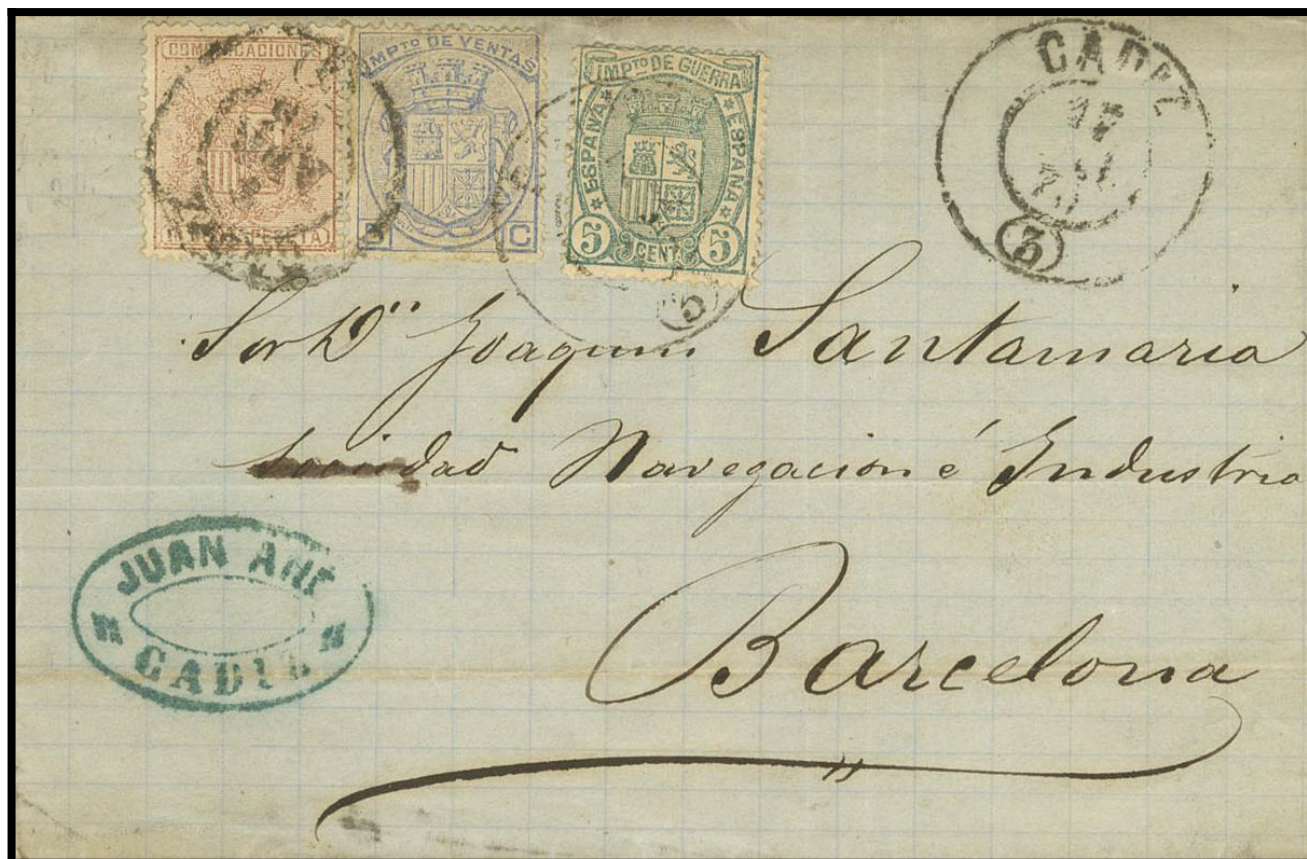 COMUNICACIONES
IMPTO DE VENTAS
C
IMPTO DE GUERRA
ESPAÑA
ESPAÑA
5 CENT 5
CADIZ
3
5
Sor Dn Joaquin Santamaria
Sociedad Navegacion é Industria
Barcelona
JUAN
CADIZ